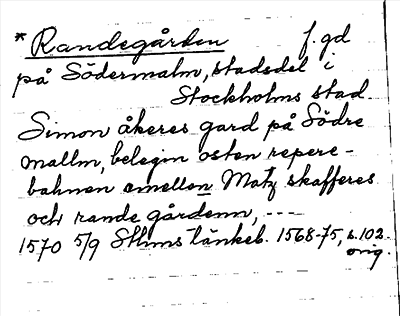 * Randegården f. gd
på Södermalm, stadsdel i
Stockholms stad
Simon åkeres gard på Södre
mallm, belegin osten repere-
bahnen emellon Matz skafferes
och rande gårdenn, ---
1570 5/9 Sthms tänkeb. 1568-75, s. 102
orig.